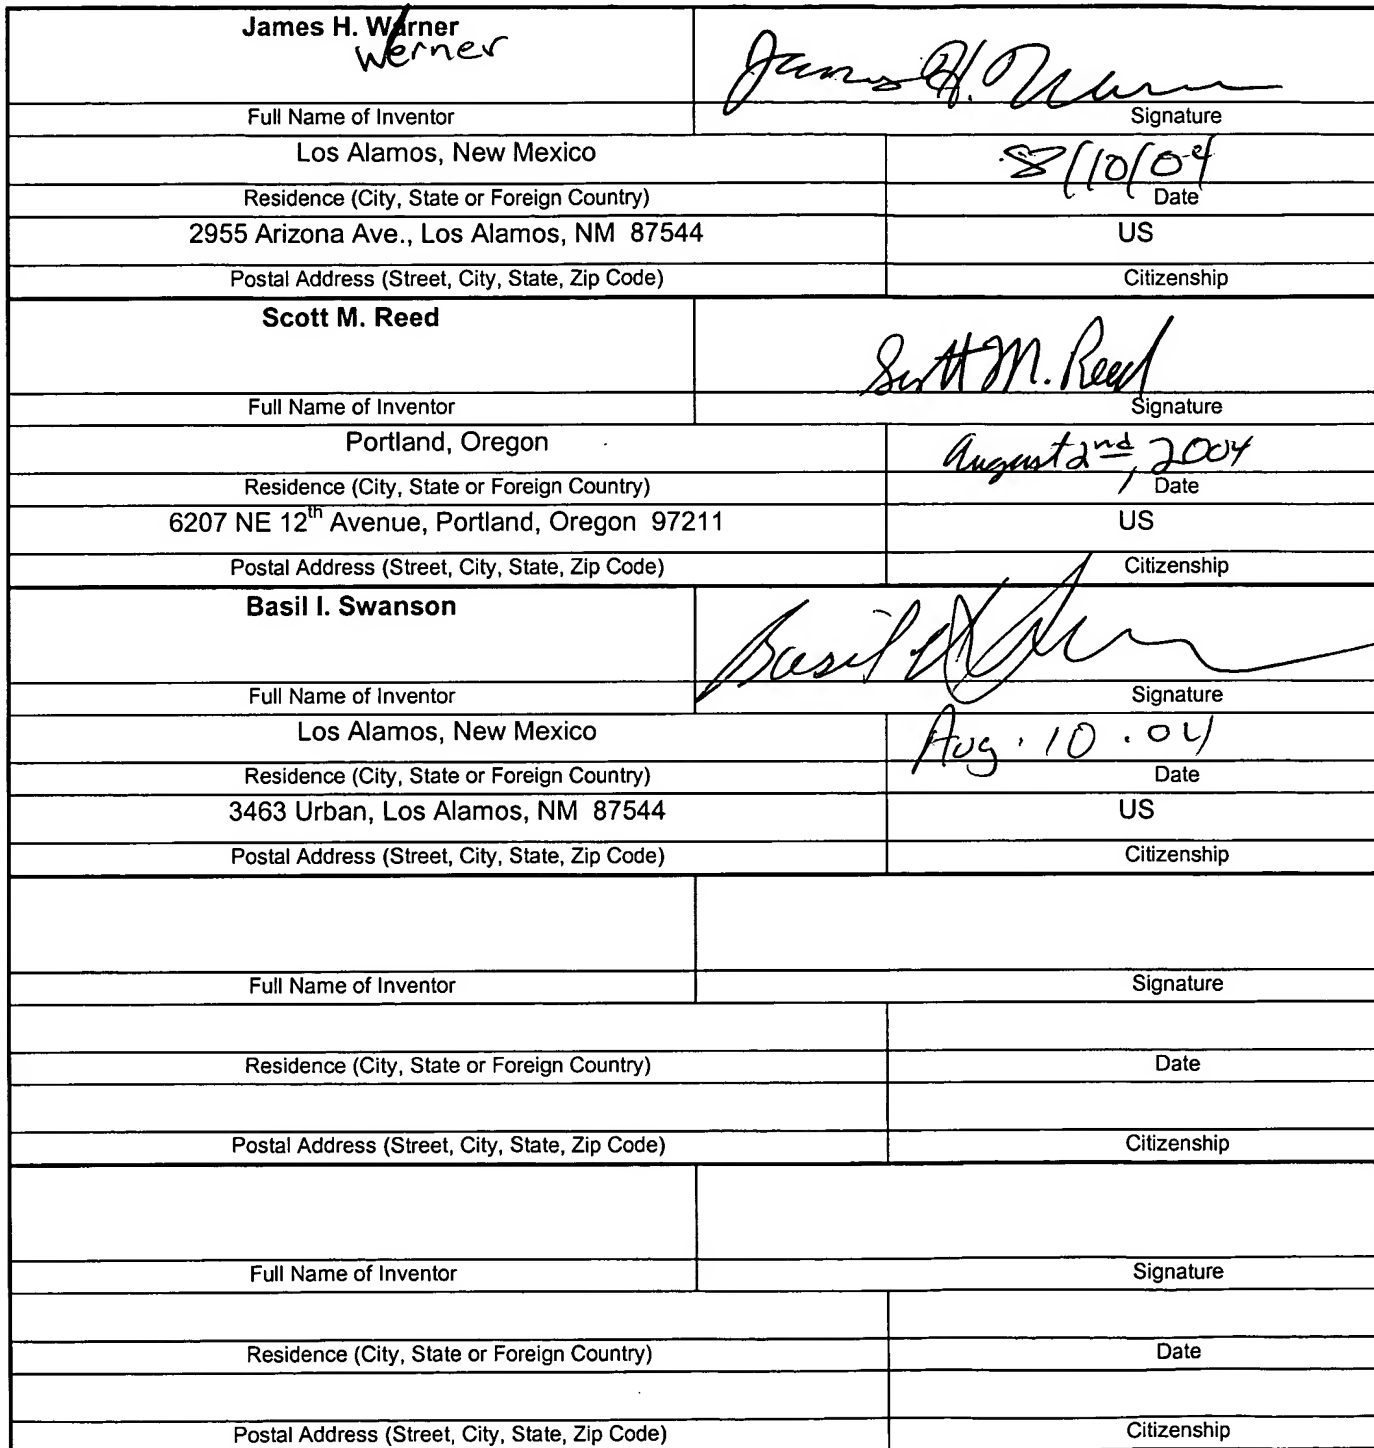 James H. Warner
Werner
James H. Werner
Full Name of Inventor Signature
Los Alamos, New Mexico 8/10/04
Residence (City, State or Foreign Country) Date
2955 Arizona Ave., Los Alamos, NM 87544 US
Postal Address (Street, City, State, Zip Code) Citizenship
Scott M. Reed
Scott M. Reed
Full Name of Inventor Signature
Portland, Oregon August 2nd, 2004
Residence (City, State or Foreign Country) Date
6207 NE 12th Avenue, Portland, Oregon 97211 US
Postal Address (Street, City, State, Zip Code) Citizenship
Basil I. Swanson
Basil I. Swanson
Full Name of Inventor Signature
Los Alamos, New Mexico Aug. 10. 04
Residence (City, State or Foreign Country) Date
3463 Urban, Los Alamos, NM 87544 US
Postal Address (Street, City, State, Zip Code) Citizenship
Full Name of Inventor Signature
Residence (City, State or Foreign Country) Date
Postal Address (Street, City, State, Zip Code) Citizenship
Full Name of Inventor Signature
Residence (City, State or Foreign Country) Date
Postal Address (Street, City, State, Zip Code) Citizenship